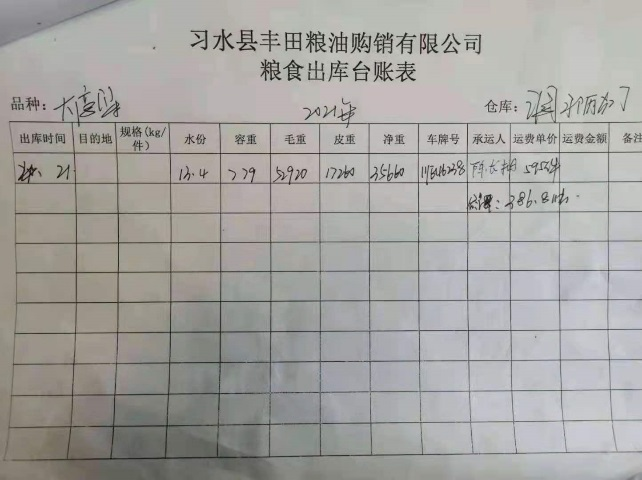 习水县丰田粮油购销有限公司
粮食出库台账表
品种: 2021年 仓库:
出库时间 目的地 规格(kg/件) 水份 容重 毛重 皮重 净重 车牌号 承运人 运费单价 运费金额 备注
21. 13.4 779 52920 17260 35660
386.8